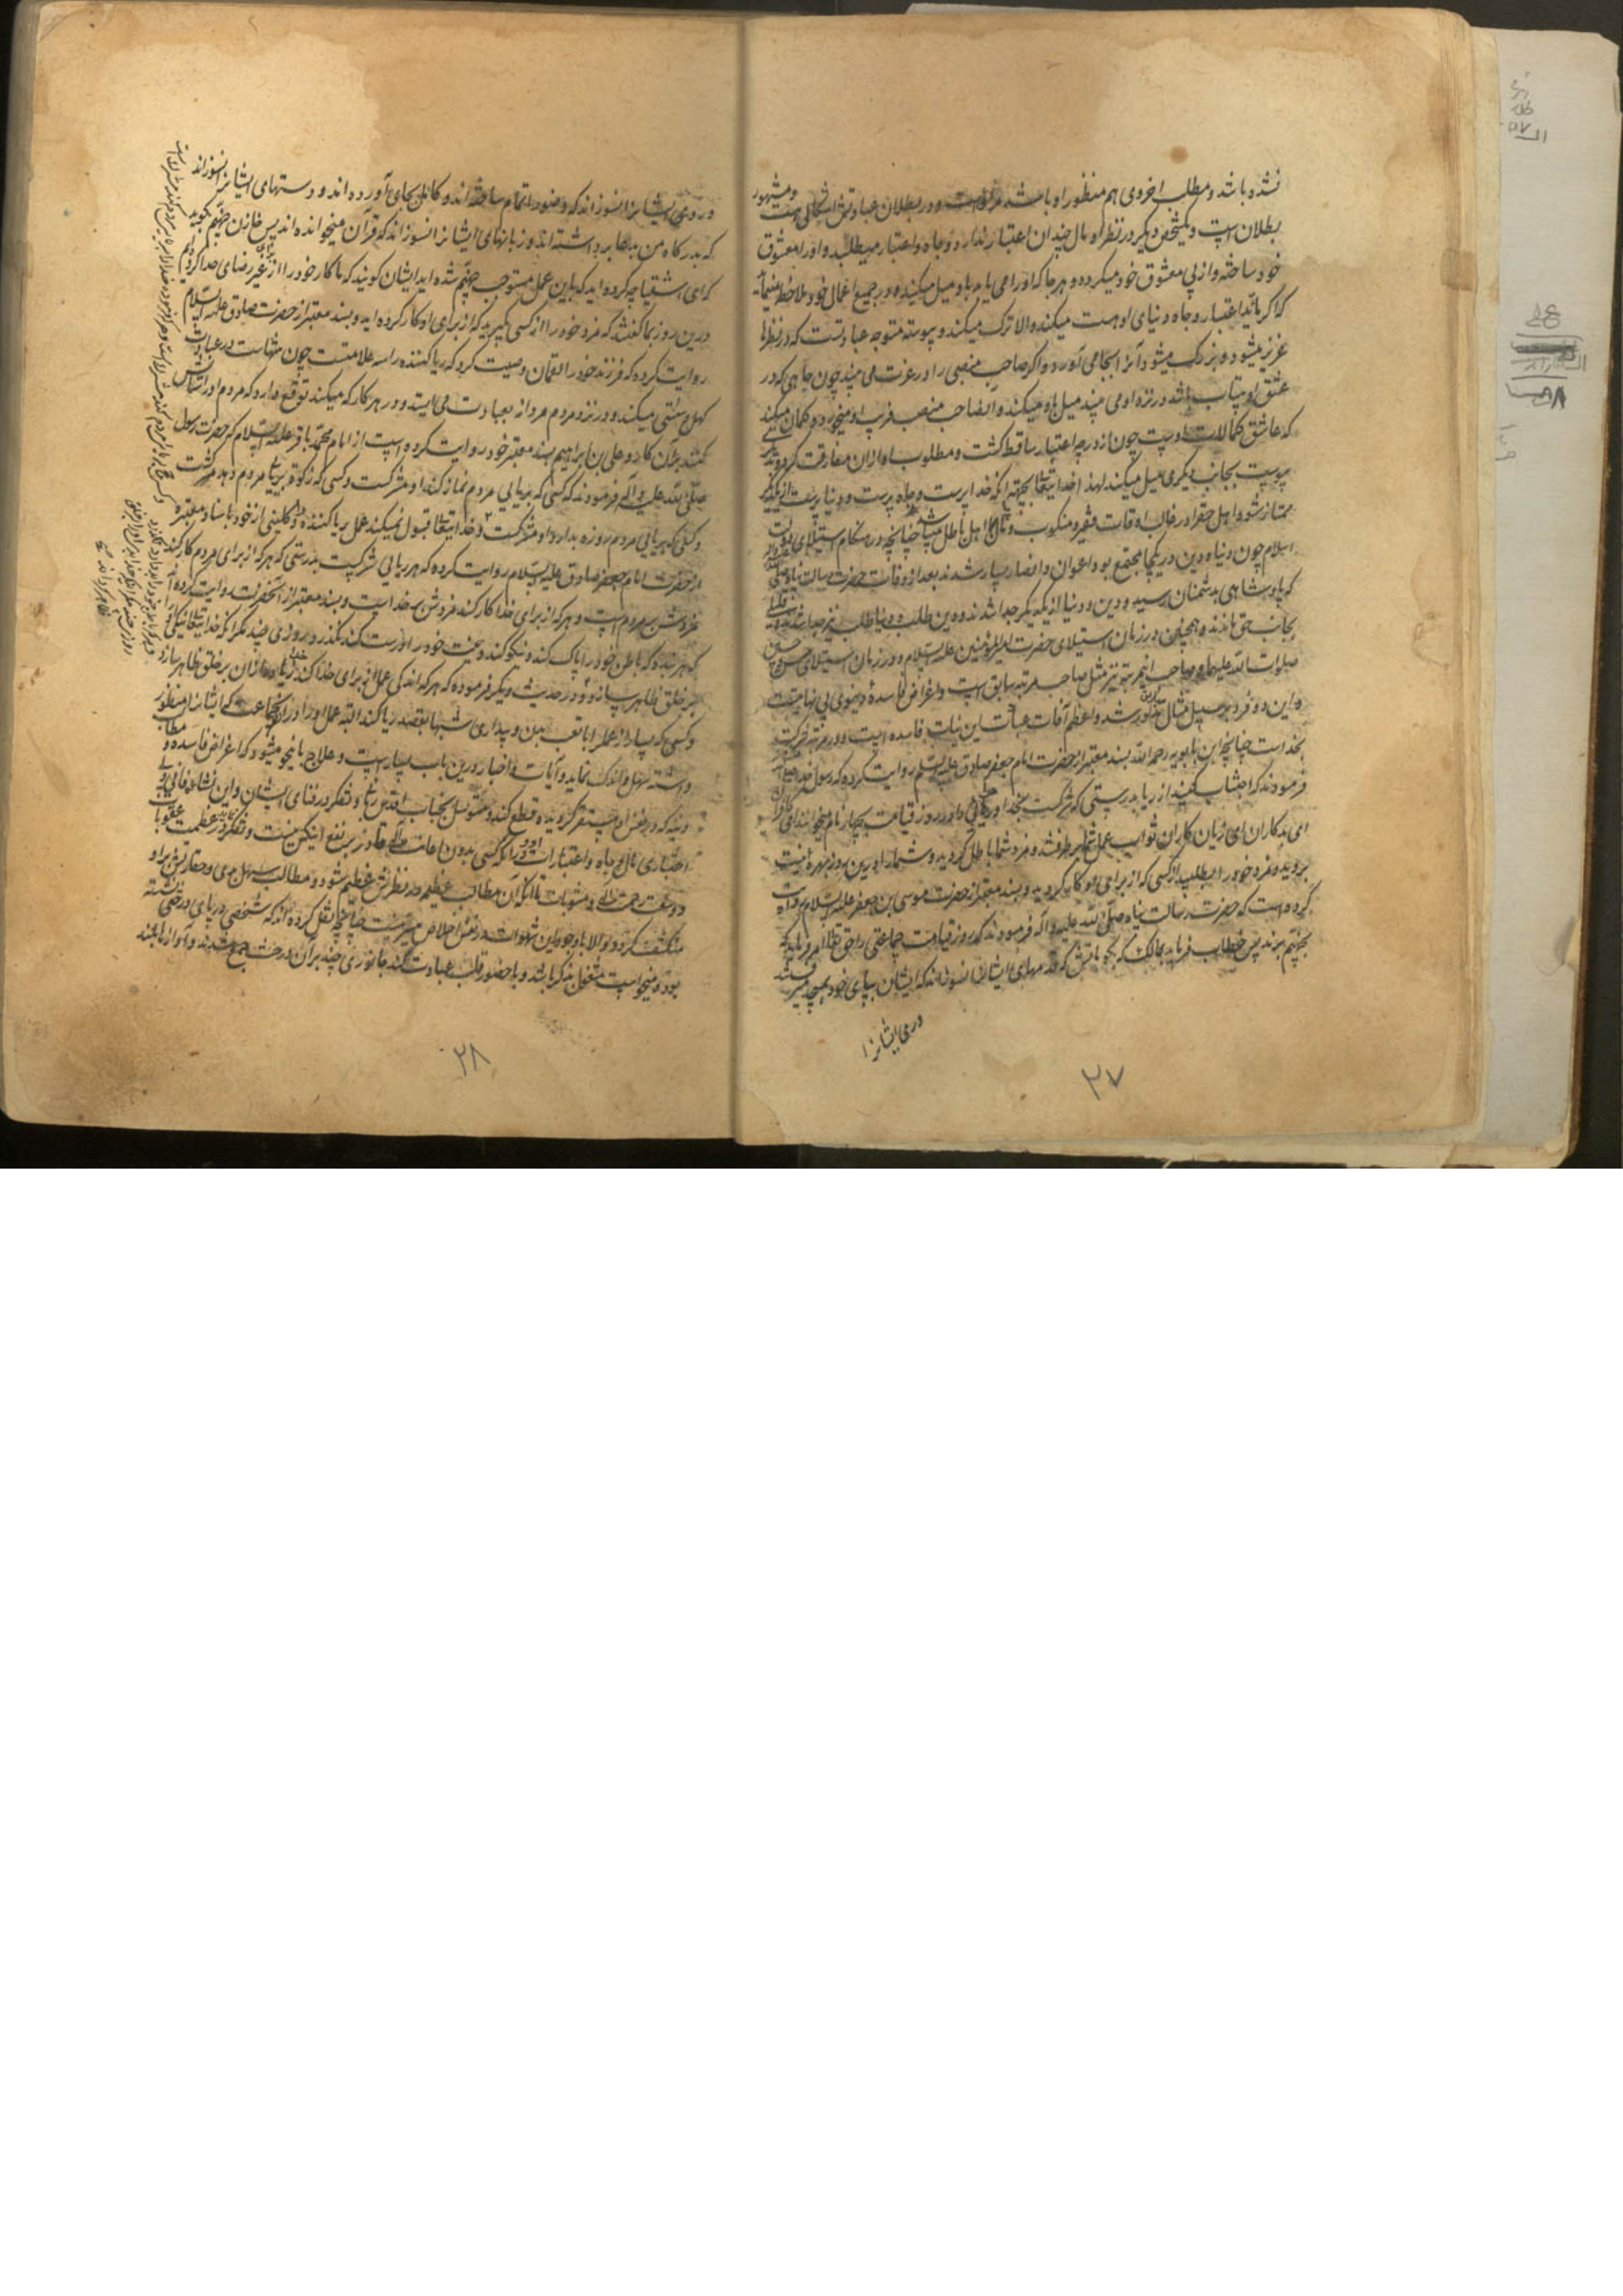 نشده باشد و مطلب اخروی هم منظور او باشد و در بطلان عبادتش اشکالی هست و مشهور
بطلان است و یکشخص دیگر در نظر او مال چندان اعتبار ندارد و جاه و اعتبار میطلبد و او را معشوق
خود ساخته و از پی معشوق خود میگردد و هر جا که او را می یابد باو میل میکند و در جمیع اعمال خود ملاحظه مینماید
که اگر باعتبار و جاه دنیای او هست میکند والا ترک میکند و پیوسته متوجه عبادتست که در نظرها
عزیز میشود و بزرگ میشود آنرا بجا می آورد و اگر صاحب منصبی را در عزت می بیند چون جاهی که در
عشق او بیتاب باشد در نزد او می بیند میل باو میکند و آن صاحب منصب فریب او میخورد و گمان میکند
که عاشق کمالات اوست چون از درجه اعتبار ساقط گشت و مطلوب او از آن مفارقت کرد
بجانب دیگری میل میکند لهذا خدایتعالی بجهة آنکه خداپرست و جاه پرست و دنیاپرست از یکدیگر
ممتاز شود اهل حق را در غالب اوقات فقیر و منکوب و اهل باطل میباشد چنانچه در هنگام استیلای دولت
اسلام چون دنیا و دین در یکجا مجتمع بود اعوان و انصار بسیار شدند بعد از وفات حضرت رسالت پناه صلی
که پادشاهی بدشمنان رسید و دین و دنیا از یکدیگر جدا شدند و دین طلب و دنیاطلب نیز جدا شدند
بجانب حق ماندند و همچنین در زمان استیلای حضرت امیرالمؤمنین علیه السلام و در زمان استیلای
صلوات الله علیهما و صاحب اینمرتبه نیز مثل صاحب مرتبه سابق است و اغراض فاسدهٔ دنیوی بی نهایتست
و این دو فرد بر سبیل مثال مذکور شد و اعظم آفات عبادات این نیات فاسده است و در مرتبه شرک
بخداست چنانچه ابن بابویه رحمه الله بسند معتبر از حضرت امام جعفر صادق علیه السلام روایت کرده که رسول خدا
فرمودند که اجتناب کنید از ریا بدرستی که شرکست بخدا و ریائی را در روز قیامت بچهار نام میخوانند ای کافر
ای بدکار ای زیان کار ثواب عمل شما برطرف شد و مزد شما باطل گردید و شما را درین روز بهره نیست
بروید و مزد خود را بطلبید از کسی که از برای او کار کردید و بسند معتبر از حضرت موسی بن جعفر علیه السلام روایت
کرده است که حضرت رسالت پناه صلی الله علیه وآله فرمودند که روز قیامت جماعتی را حق تعالی امر فرماید که
بجهنم برند پس خطاب فرماید بمالک که بگو باتش که قدمهای ایشانرا نسوزاند که ایشان بپای خود بمسجد میرفتند
و روی ایشانرا
۳۷
و روی ایشانرا نسوزاند که وضو را تمام ساخته اند و کامل بجای آورده اند و دستهای ایشانرا نسوزاند
که بدرگاه من بدعا برداشته اند و زبانهای ایشانرا نسوزاند که قرآن میخوانده اند پس خازن جهنم گوید
که ای اشقیا چه کرده اید که باین عمل مستوجب جهنم شده اید ایشان گویند که ما کار خود را از برای غیر رضای خدا کردیم
درین روز بما گفتند که مزد خود را از کسی گیرید که از برای او کار کرده اید و بسند معتبر از حضرت صادق علیه السلام
روایت کرده که فرزند خود را لقمان وصیت کرد که ریا کننده را سه علامتست چون تنهاست در عبادت
کهل و سستی میکند و در نزد مردم مردانه بعبادت می ایستد و در هر کار که میکند توقع دارد که مردم او را ستایش
کنند بر آن کار و علی بن ابراهیم بسند معتبر خود روایت کرده است از امام محمد باقر علیه السلام که حضرت رسول
صلی الله علیه وآله فرمودند که کسی که بریائی مردم نماز کند او مشرکست و کسی که زکوة بریای مردم دهد مشرکست
و کسی که بریائی مردم روزه بدارد او مشرکست و خدایتعالی قبول نمیکند عمل ریا کننده را و کلینی از خود باسناد معتبره
از حضرت امام جعفر صادق علیه السلام روایت کرده که هر ریائی شرکست بدرستی که هر که از برای مردم کار کند
مزدش بر مردم است و هر که از برای خدا کار کند مزدش بر خداست و بسند معتبر از آنحضرت روایت کرده
که هر بنده که باطن خود را پاک کند و نیکو کند و نیت خود را درست کند نگذرد روزی چند مگر آنکه خدایتعالی نیکی او را
بر خلق ظاهر سازد و در حدیث دیگر فرموده که هر که اندکی عمل از برای خدا کند زیاده از آن بر خلق ظاهر سازد
و کسی که بسیار از عمل را با تعب بدن و بیداری شبها بقصد ریا کند البته عمل او را در آن جماعت که ایشانرا منظور
داشته سهل و اندک نماید و آیات و اخبار درین باب بسیار است و علاج باینکه میشود که اغراض فاسده و مطالب
دنیه که در نفس او مستقر گردیده قطع کند و متوسل بجناب اقدس ربانی و تفکر در فنای ایشان و این نشاءه فانی
اعتباری مال و جاه و اعتبارات و آنکه کسی بدون اعانت قادر بر نفع اینکس نیست و تفکر در عظمت عقوبات
و وسعت رحمت الهی و مثوبات تا آنکه آن مطالب عظیمه در نظرش عظیم شود و مطالب سهل
منکشف گردد والا با وجود این شهوات در نفس اخلاص میسر نیست چنانچه نقل کرده اند که شخصی در پای درختی نشسته
بود و میخواست مشغول بذکر باشد و باحضور قلب عبادت کند جانوری چند بر آن درخت جمع شدند و آواز بلند
۳۸